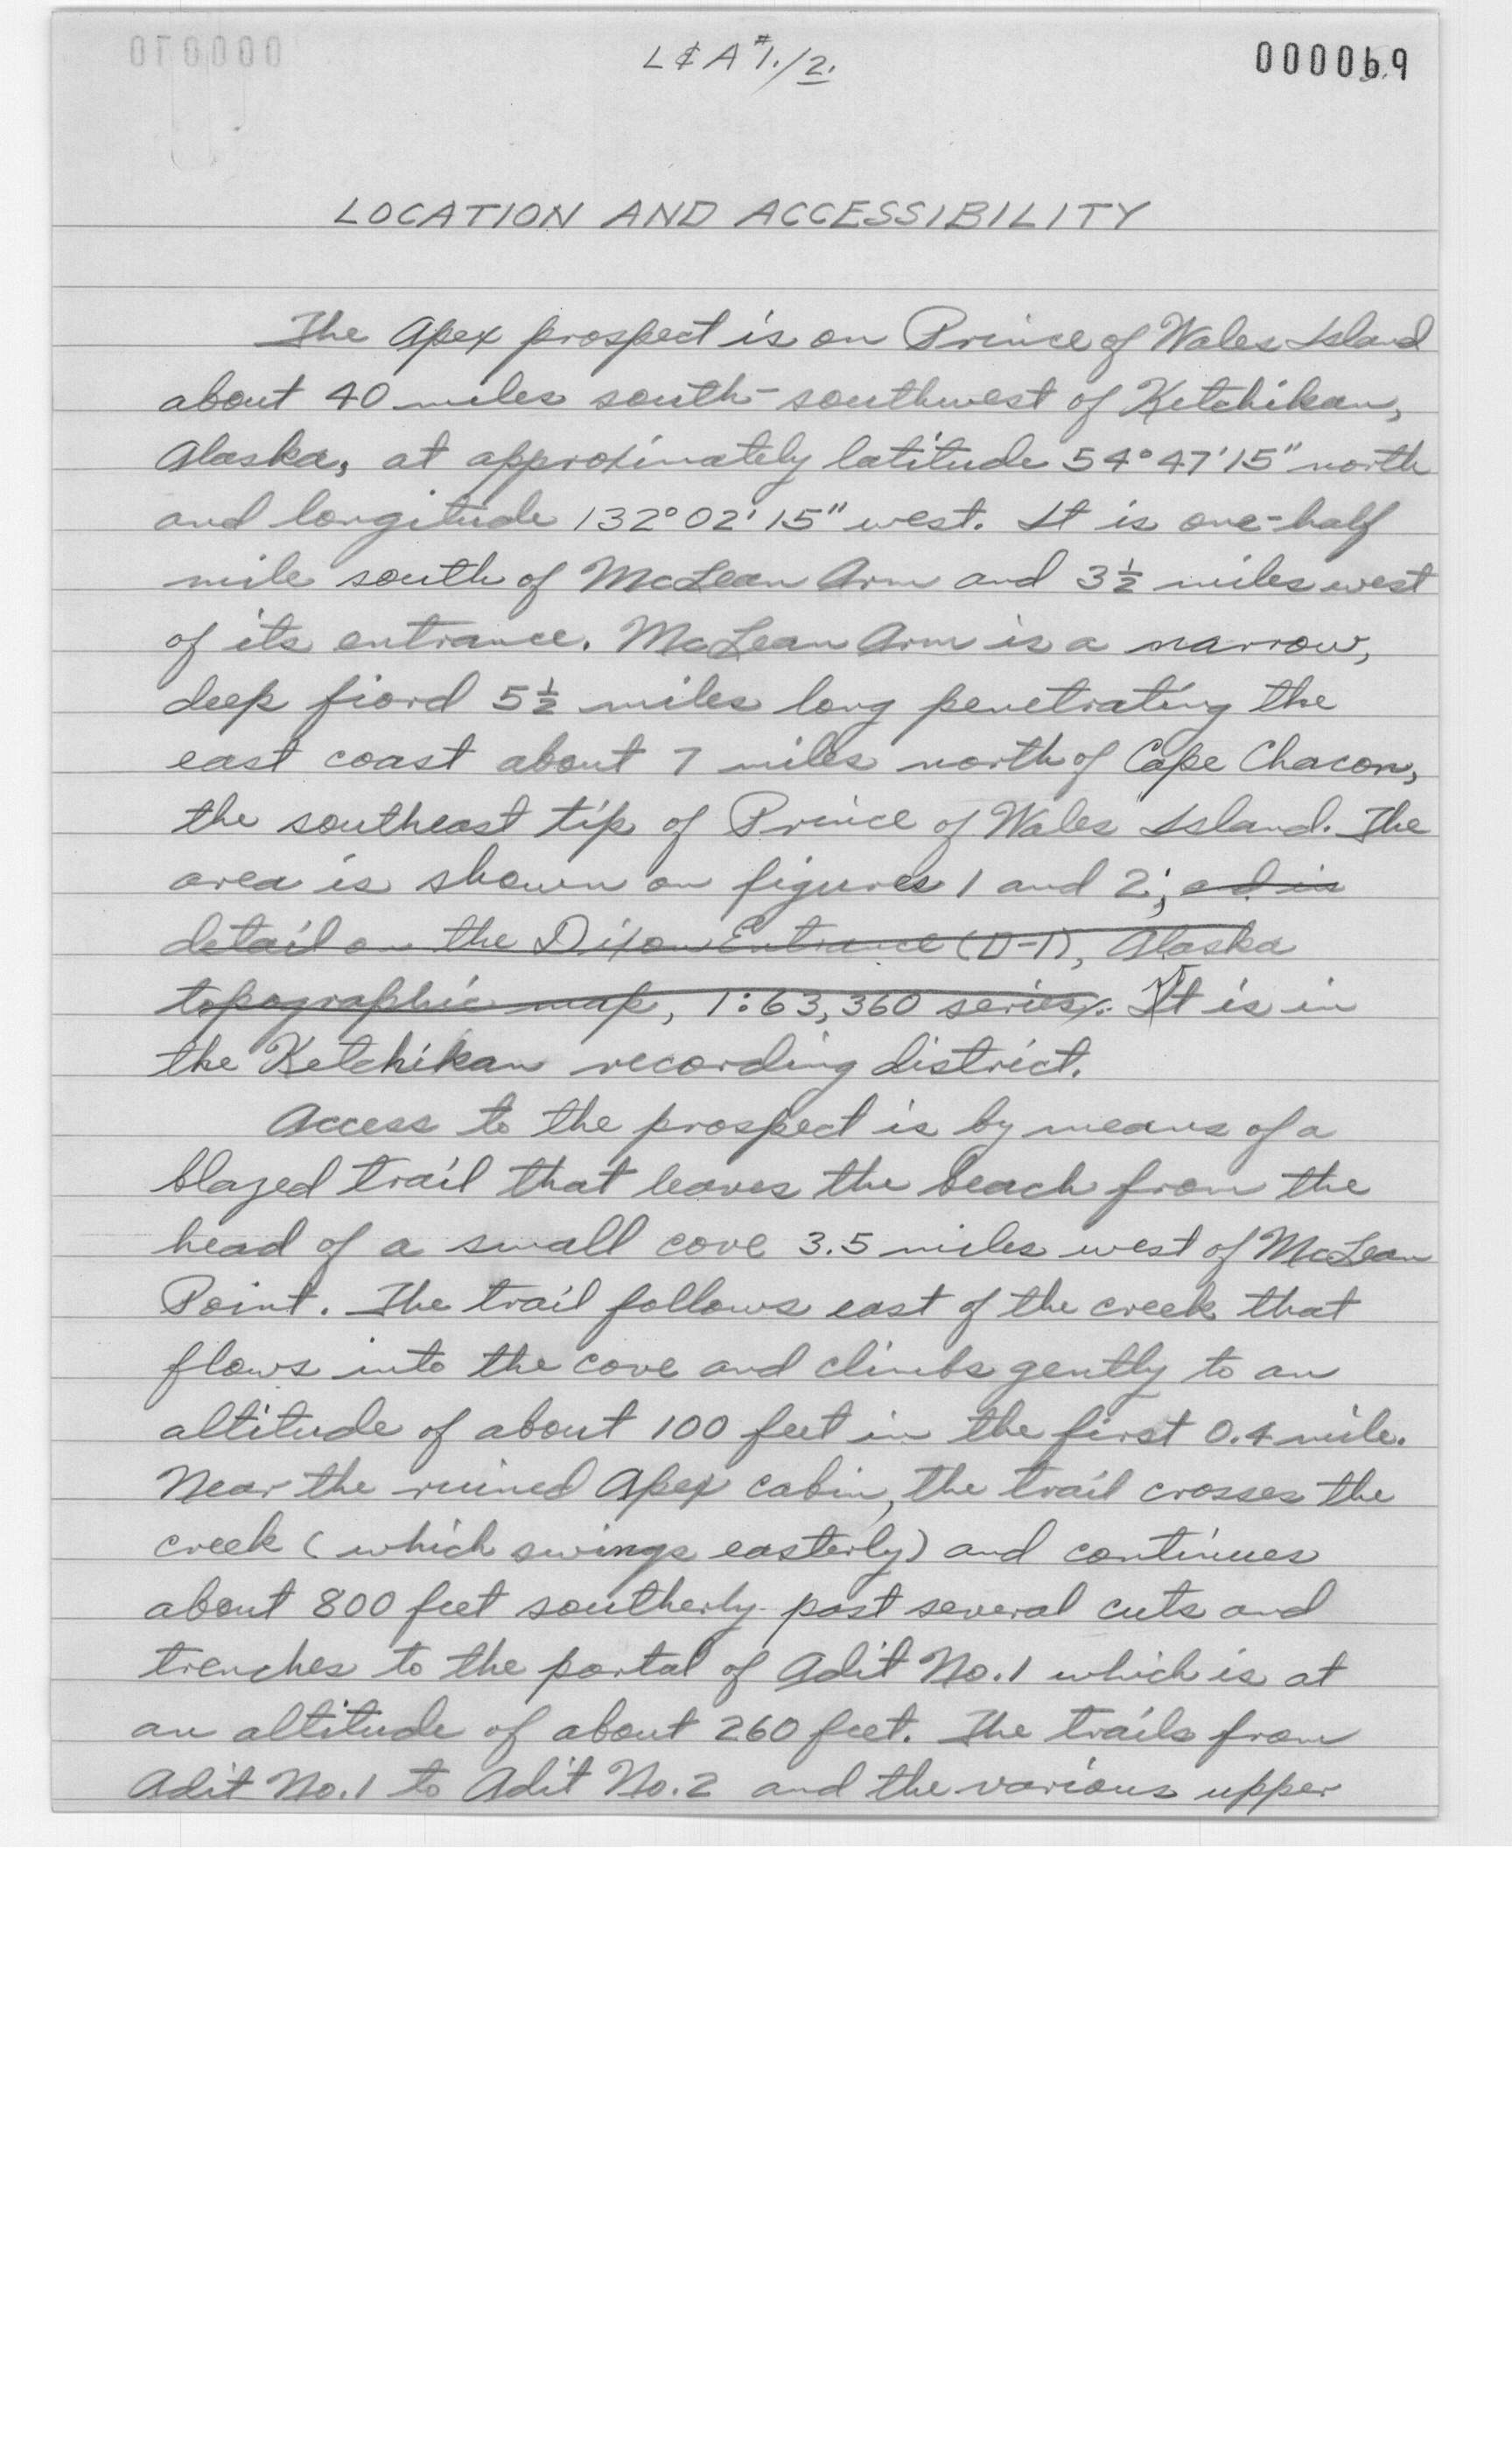 L & A #1./2.
000069
LOCATION AND ACCESSIBILITY
The Apex prospect is on Prince of Wales Island
about 40 miles south-southwest of Ketchikan,
Alaska, at approximately latitude 54°47'15" north
and longitude 132°02'15" west. It is one-half
mile south of McLean Arm and 3½ miles west
of its entrance. McLean Arm is a narrow,
deep fiord 5½ miles long penetrating the
east coast about 7 miles north of Cape Chacon,
the southeast tip of Prince of Wales Island. The
area is shown on figures 1 and 2; and in
detail on the Dixon Entrance (D-1), Alaska
topographic map, 1:63,360 series. It is in
the Ketchikan recording district.
Access to the prospect is by means of a
blazed trail that leaves the beach from the
head of a small cove 3.5 miles west of McLean
Point. The trail follows east of the creek that
flows into the cove and climbs gently to an
altitude of about 100 feet in the first 0.4 mile.
Near the ruined Apex cabin, the trail crosses the
creek (which swings easterly) and continues
about 800 feet southerly past several cuts and
trenches to the portal of Adit No.1 which is at
an altitude of about 260 feet. The trails from
Adit No.1 to Adit No.2 and the various upper